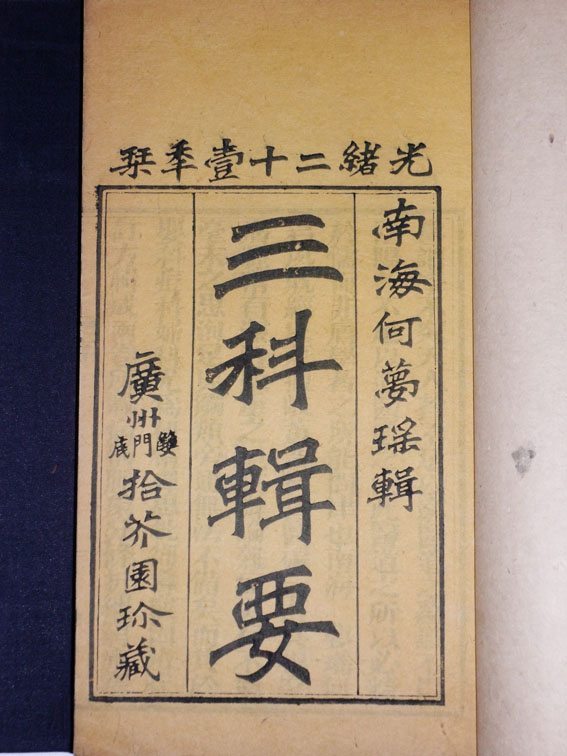 光緒二十壹秊栞
南海何夢瑤輯
三科輯要
廣州雙門底拾芥園珍藏